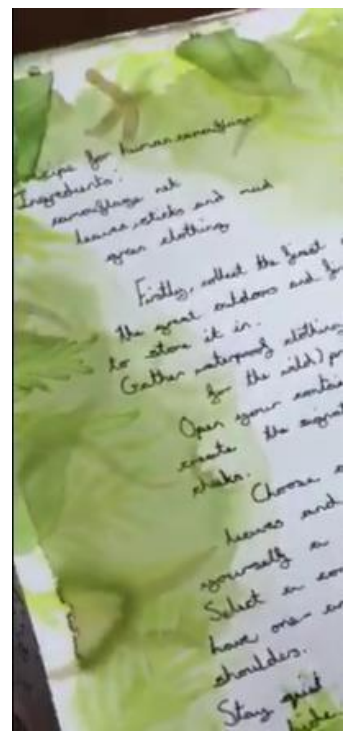 Recipe for human camouflage
Ingredients:
camouflage net
leaves, sticks and mud
green clothing
Firstly, collect the finest
the great outdoors and
to store it in.
Gather waterproof clothing
for the wild)
Open your
create the
cheeks.
Choose
leaves and
yourself a
Select a
have one
shoulder.
Stay quiet
hide